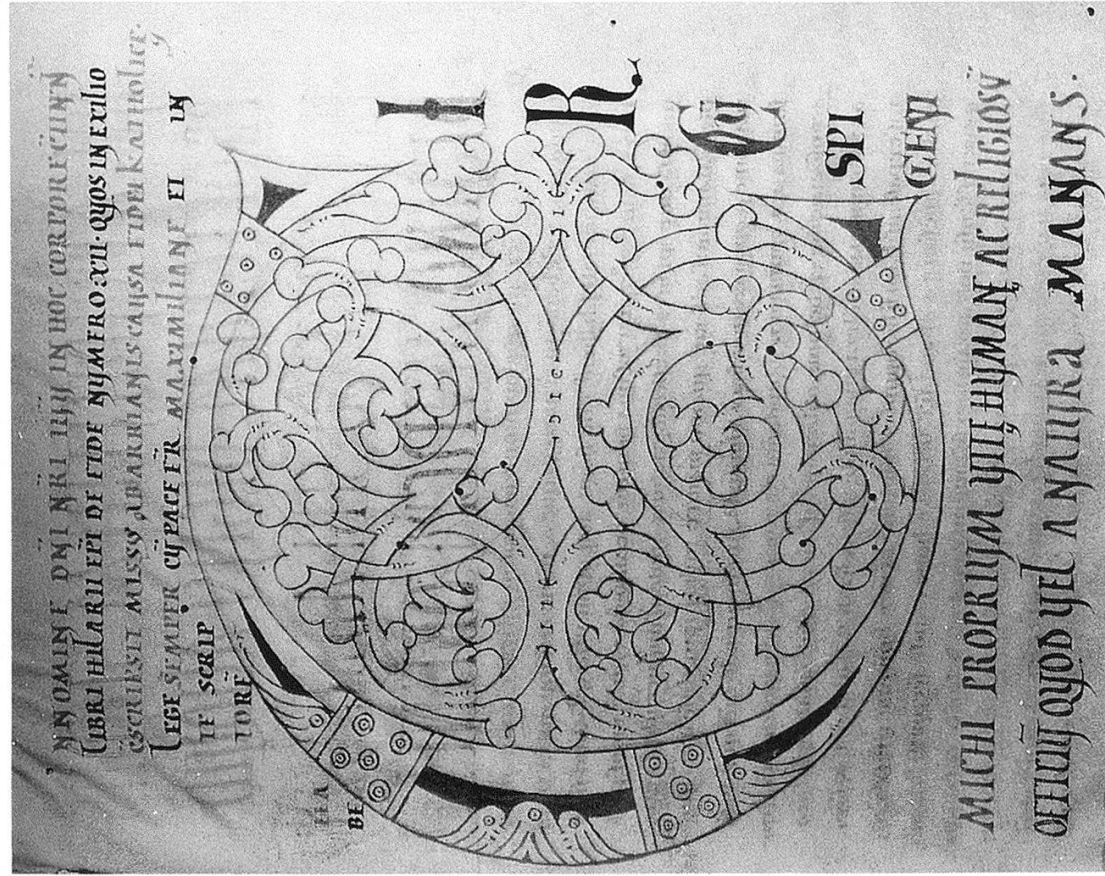 NNOMINE DÑI ÑRI IHU IN HOC CORPORE
LIBRI HILARII EPĪ DE FIDE NUMERO·XII·QUOS IN EXILIO
C̄SCRIPSIT MISSUS AB ARRIANIS CAUSA FIDEI KATHOLICE·
LEGE SEMPER CŪ PACE FR̄ MAXIMILIANE ET IN
TE SCRIP
TORĒ
HA
BE
I
R
CŪ
SPI
CIENTI
MICHI PROPRIUM VITĘ HUMANĘ AC RELIGIOSŪ
OFFITIŪ QUOD VEL A NATURA MANANS·